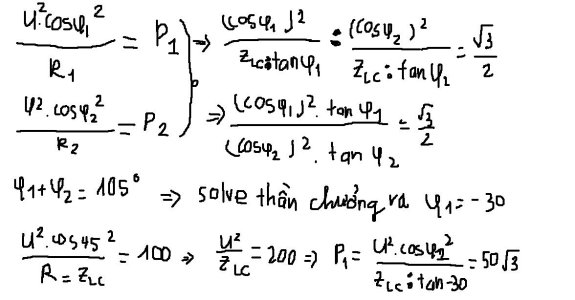 U².cosφ₁² / R₁ = P₁ ⇒ (cosφ₁)² / Z_LC:tanφ₁ : (cosφ₂)² / Z_LC:tanφ₂ = √3 / 2
U².cosφ₂² / R₂ = P₂ ⇒ (cosφ₁)².tanφ₁ / (cosφ₂)².tanφ₂ = √3 / 2
φ₁+φ₂ = 105° ⇒ solve thần chưởng ra φ₁ = -30
U².cos45² / R = Z_LC = 100 ⇒ U² / Z_LC = 200 ⇒ P₁ = U².cosφ₂² / Z_LC:tan-30 = 50√3